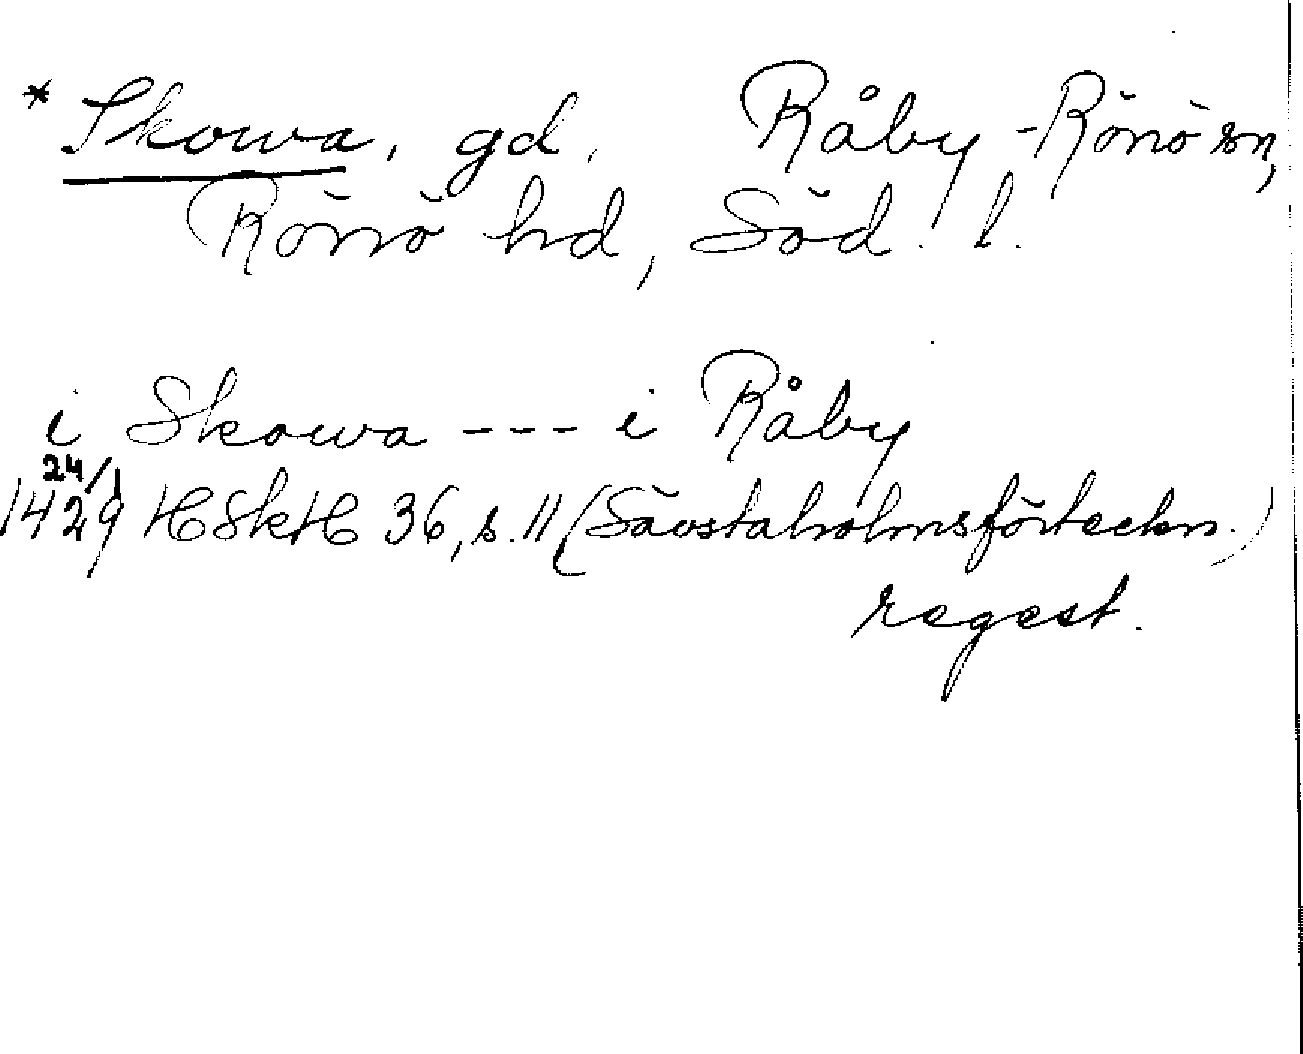 * Skowa, gd. Råby-Rönö sn,
Rönö hd, Söd. l.
i Skowa --- i Råby
24/1
1429 HSkH 36, s. 11 (Sävstaholmsförteckn.)
regest.